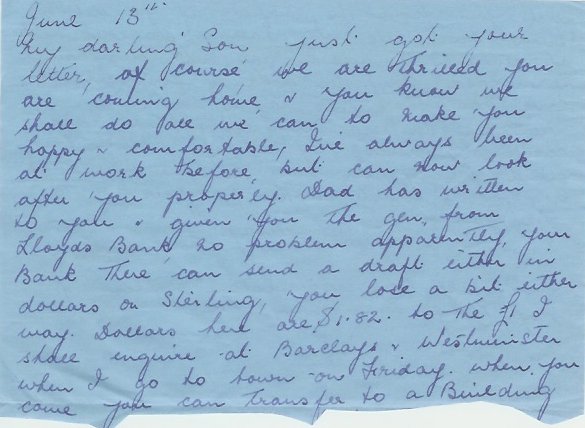 June 13th
My darling Son just got your
letter, of course we are thrilled you
are coming home, & you know we
shall do all we can to make you
happy & comfortable, I've always been
at work before, but can now look
after you properly. Dad has written
to you & given you the gen, from
Lloyds Bank, no problem apparently, your
Bank There can send a draft either in
dollars or Sterling, you lose a bit either
way. Dollars here are $1.82. to the £1 I
shall enquire at Barclays & Westminster
when I go to town on Friday. when you
come you can transfer to a Building